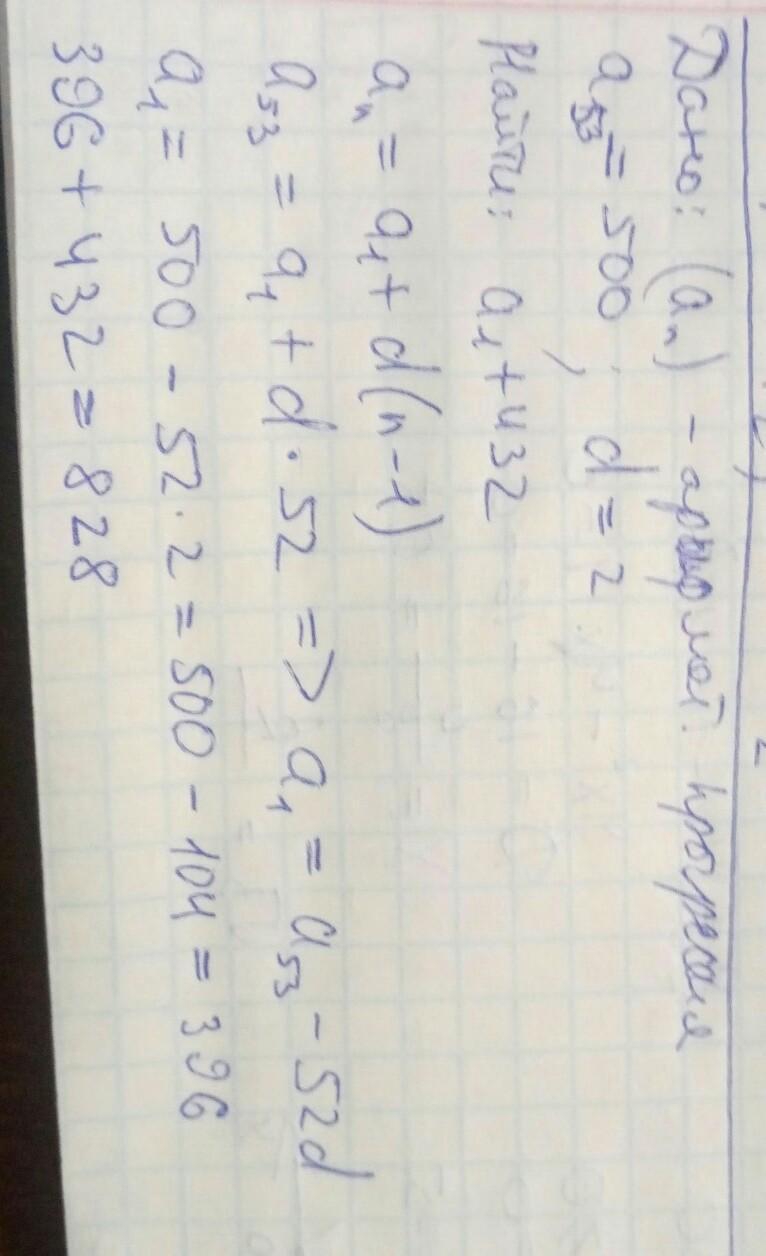 Дано: (aₙ) - арифмет. прогрессия
a₅₃ = 500, d = 2
Найти: a₁ + 432
aₙ = a₁ + d(n-1)
a₅₃ = a₁ + d · 52 => a₁ = a₅₃ - 52d
a₁ = 500 - 52 · 2 = 500 - 104 = 396
396 + 432 = 828